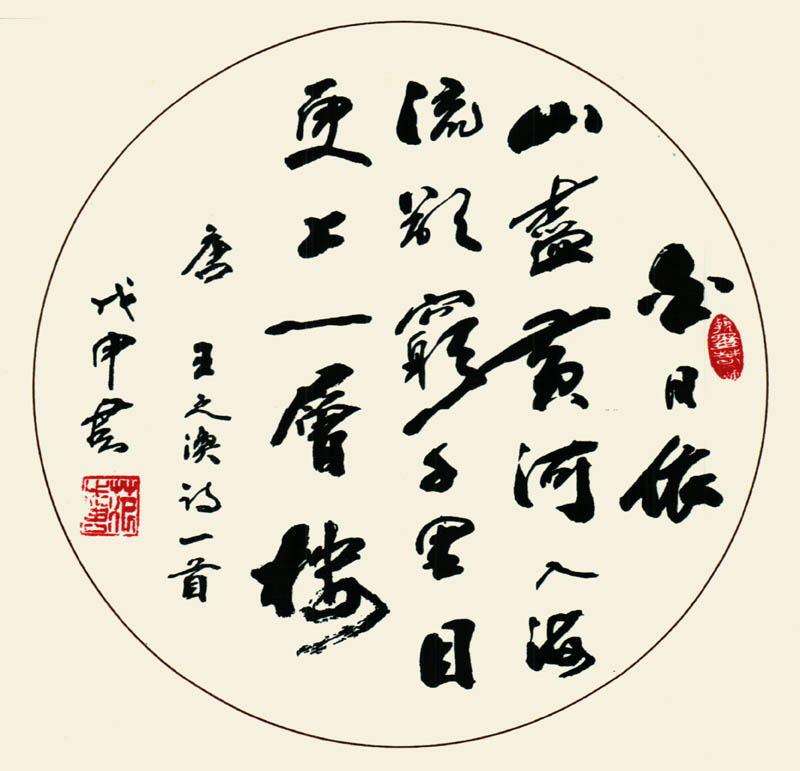 白日依
山盡黄河入海
流欲窮千里目
更上一層樓
唐 王之渙詩一首
戊申